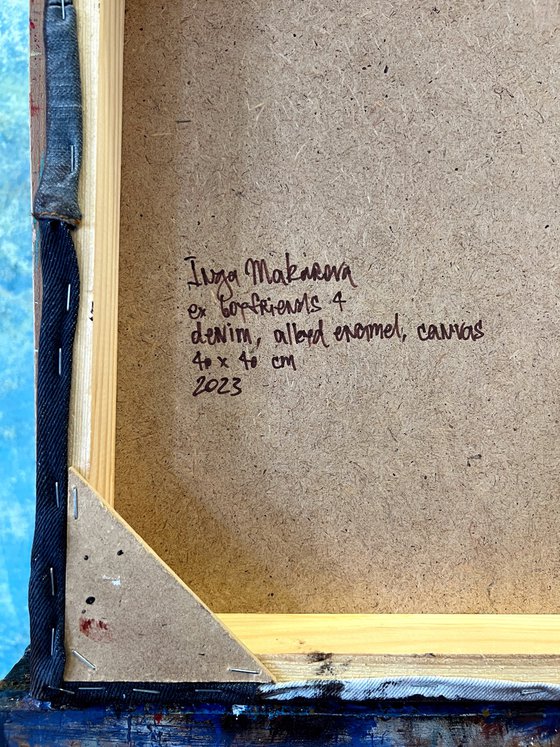 Inga Makarova
ex boyfriends 4
denim, alkyd enamel, canvas
40 x 40 cm
2023